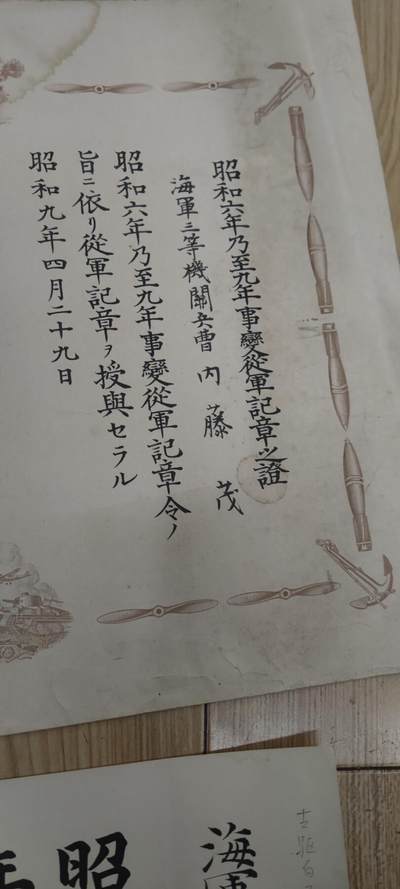 昭和六年乃至九年事變從軍記章之證
海軍三等機關兵曹 内藤茂
昭和六年乃至九年事變從軍記章令ノ
旨ニ依リ從軍記章ヲ授與セラル
昭和九年四月二十九日
海軍
昭